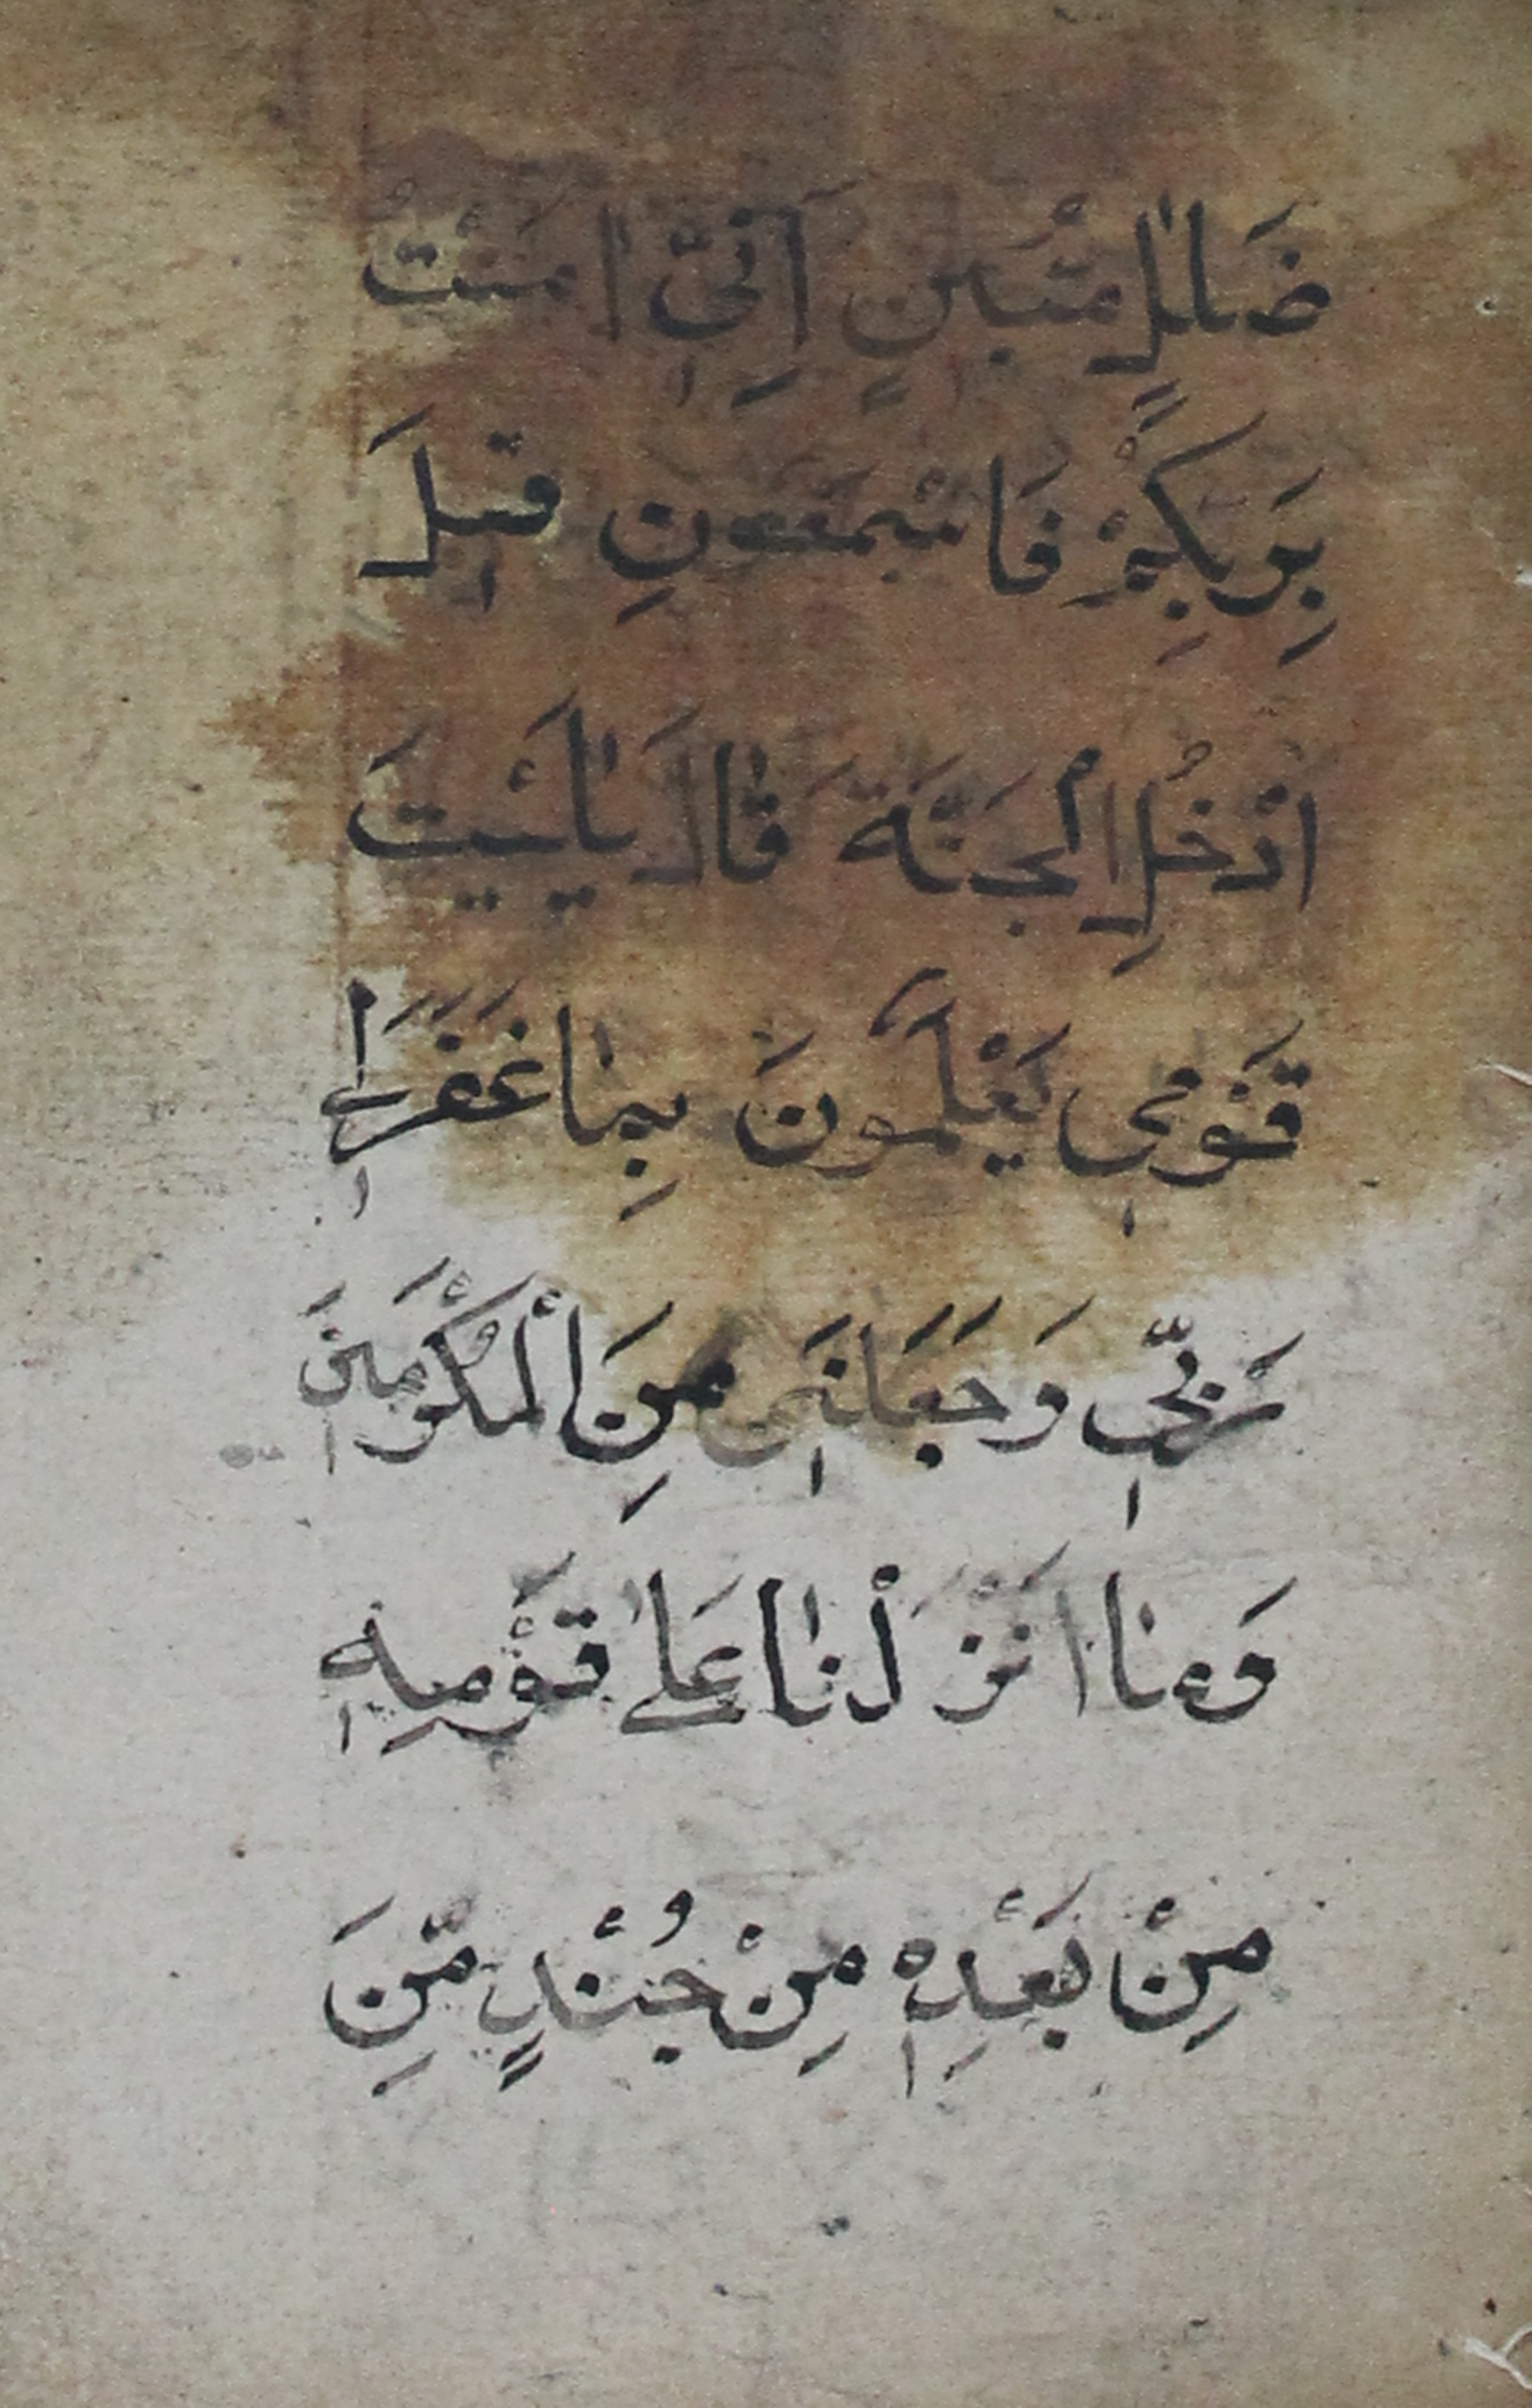 ضَلٰلٍ مُّبٖينٍ اِنّٖى اٰمَنْتُ
بِرَبِّكُمْ فَاسْمَعُونِ قٖيلَ
ادْخُلِ الْجَنَّةَ قَالَ يٰلَيْتَ
قَوْمٖى يَعْلَمُونَ بِمَا غَفَرَ لٖى
رَبّٖى وَجَعَلَنٖى مِنَ الْمُكْرَمٖينَ
وَمَا اَنْزَلْنَا عَلٰى قَوْمِهٖ
مِنْ بَعْدِهٖ مِنْ جُنْدٍ مِّنَ